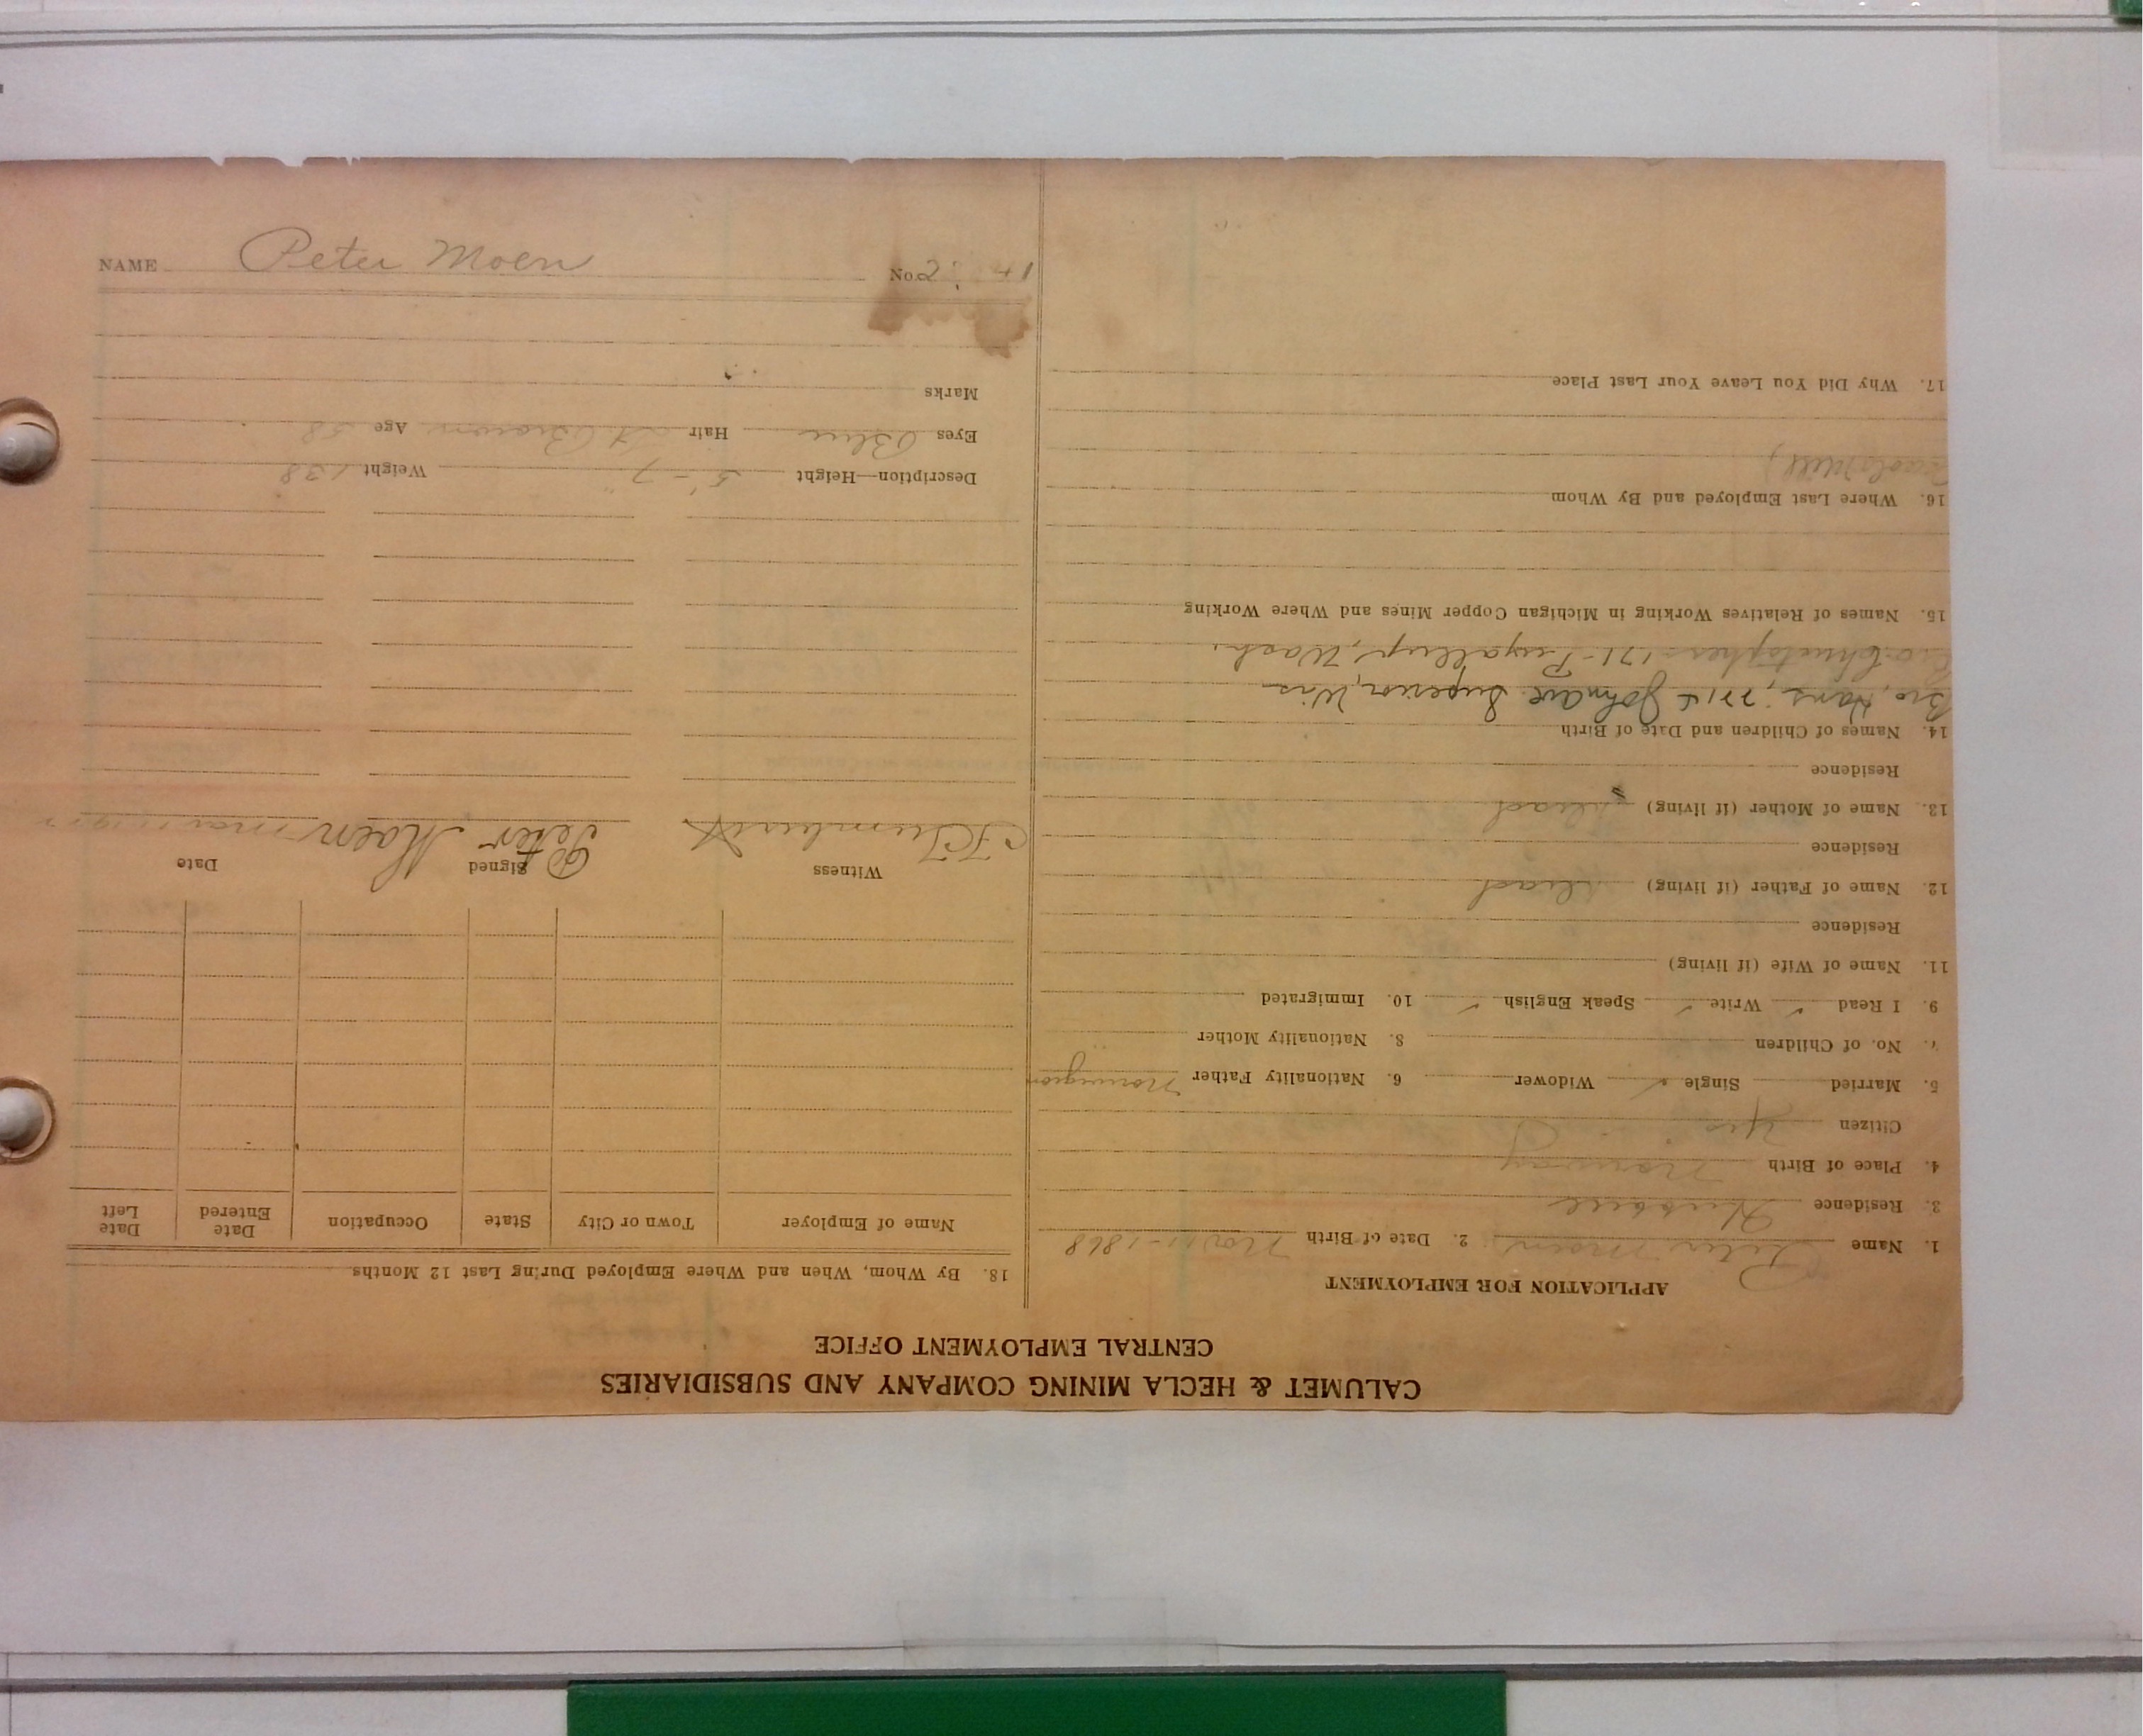 CALUMET & HECLA MINING COMPANY AND SUBSIDIARIES
CENTRAL EMPLOYMENT OFFICE
APPLICATION FOR EMPLOYMENT
1. Name Peter Moen 2. Date of Birth Nov 11-1868
3. Residence Hubbell
4. Place of Birth Norway
Citizen Yes
5. Married Single ✓ Widower 6. Nationality Father Norwegian
7. No. of Children 8. Nationality Mother
9. I Read ✓ Write ✓ Speak English ✓ 10. Immigrated
11. Name of Wife (if living)
Residence
12. Name of Father (if living) Dead
Residence
13. Name of Mother (if living) Dead
Residence
14. Names of Children and Date of Birth
Bro, Hans, John ave Superior, Wis
Bro Christopher 171- Puyallup, Wash.
15. Names of Relatives Working in Michigan Copper Mines and Where Working
16. Where Last Employed and By Whom
Mill
17. Why Did You Leave Your Last Place
18. By Whom, When and Where Employed During Last 12 Months
Name of Employer Town or City State Occupation Date Entered Date Left
Witness Signed Date
Peter Moen
Description—Height 5'-7" Weight 138
Eyes Blue Hair Lt Brown Age 58
Marks
NAME Peter Moen No.